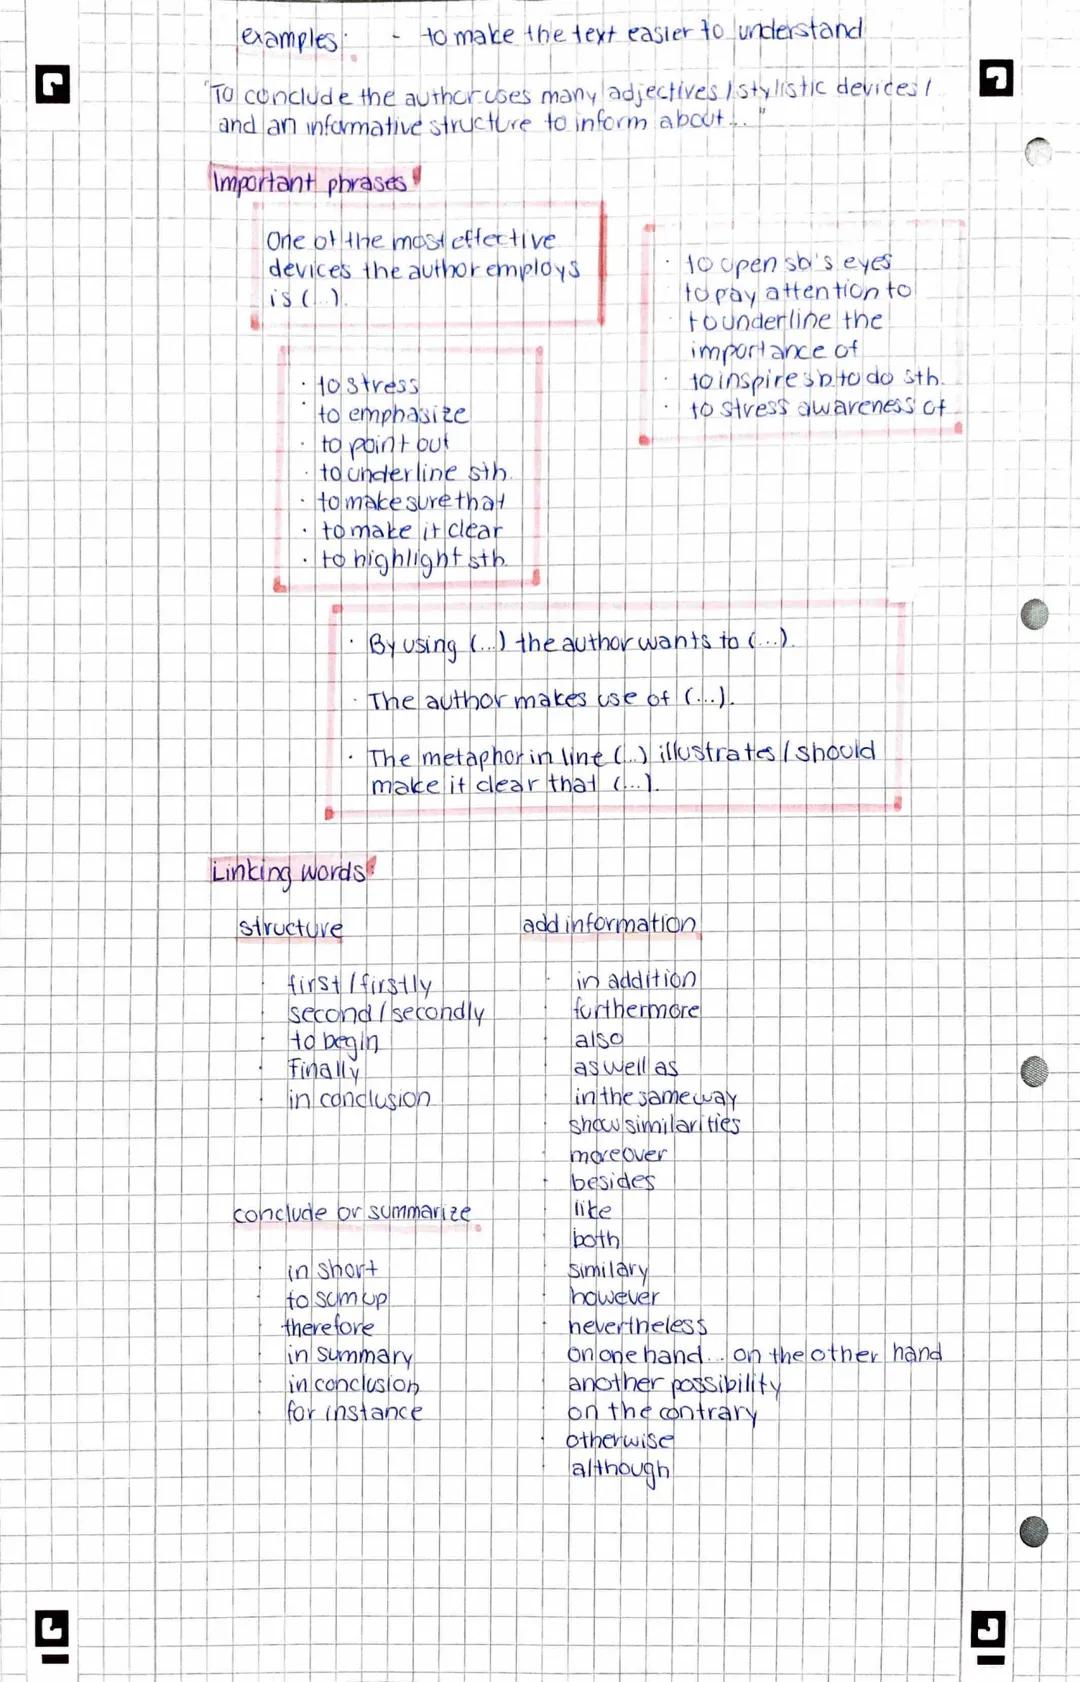 examples: - to make the text easier to understand
"To conclude the author uses many adjectives / stylistic devices /
and an informative structure to inform about... "
Important phrases!
One of the most effective
devices the author employs
is (...).
· to open sb's eyes
to pay attention to
· to underline the
importance of
· to inspire sb to do sth.
· to stress awareness of
· to stress
· to emphasize
· to point out
· to underline sth.
· to make sure that
· to make it clear
· to highlight sth.
· By using (...) the author wants to (...).
· The author makes use of (...).
· The metaphor in line (...) illustrates / should
make it clear that (...).
Linking words!
structure
· first / firstly
· second / secondly
· to begin
· Finally
· in conclusion
add information
· in addition
· furthermore
· also
· as well as
· in the same way
· show similarities
· moreover
· besides
· like
· both
· similary
· however
· nevertheless
· on one hand... on the other hand
· another possibility
· on the contrary
· otherwise
· although
conclude or summarize
· in short
· to sum up
· therefore
· in summary
· in conclusion
· for instance